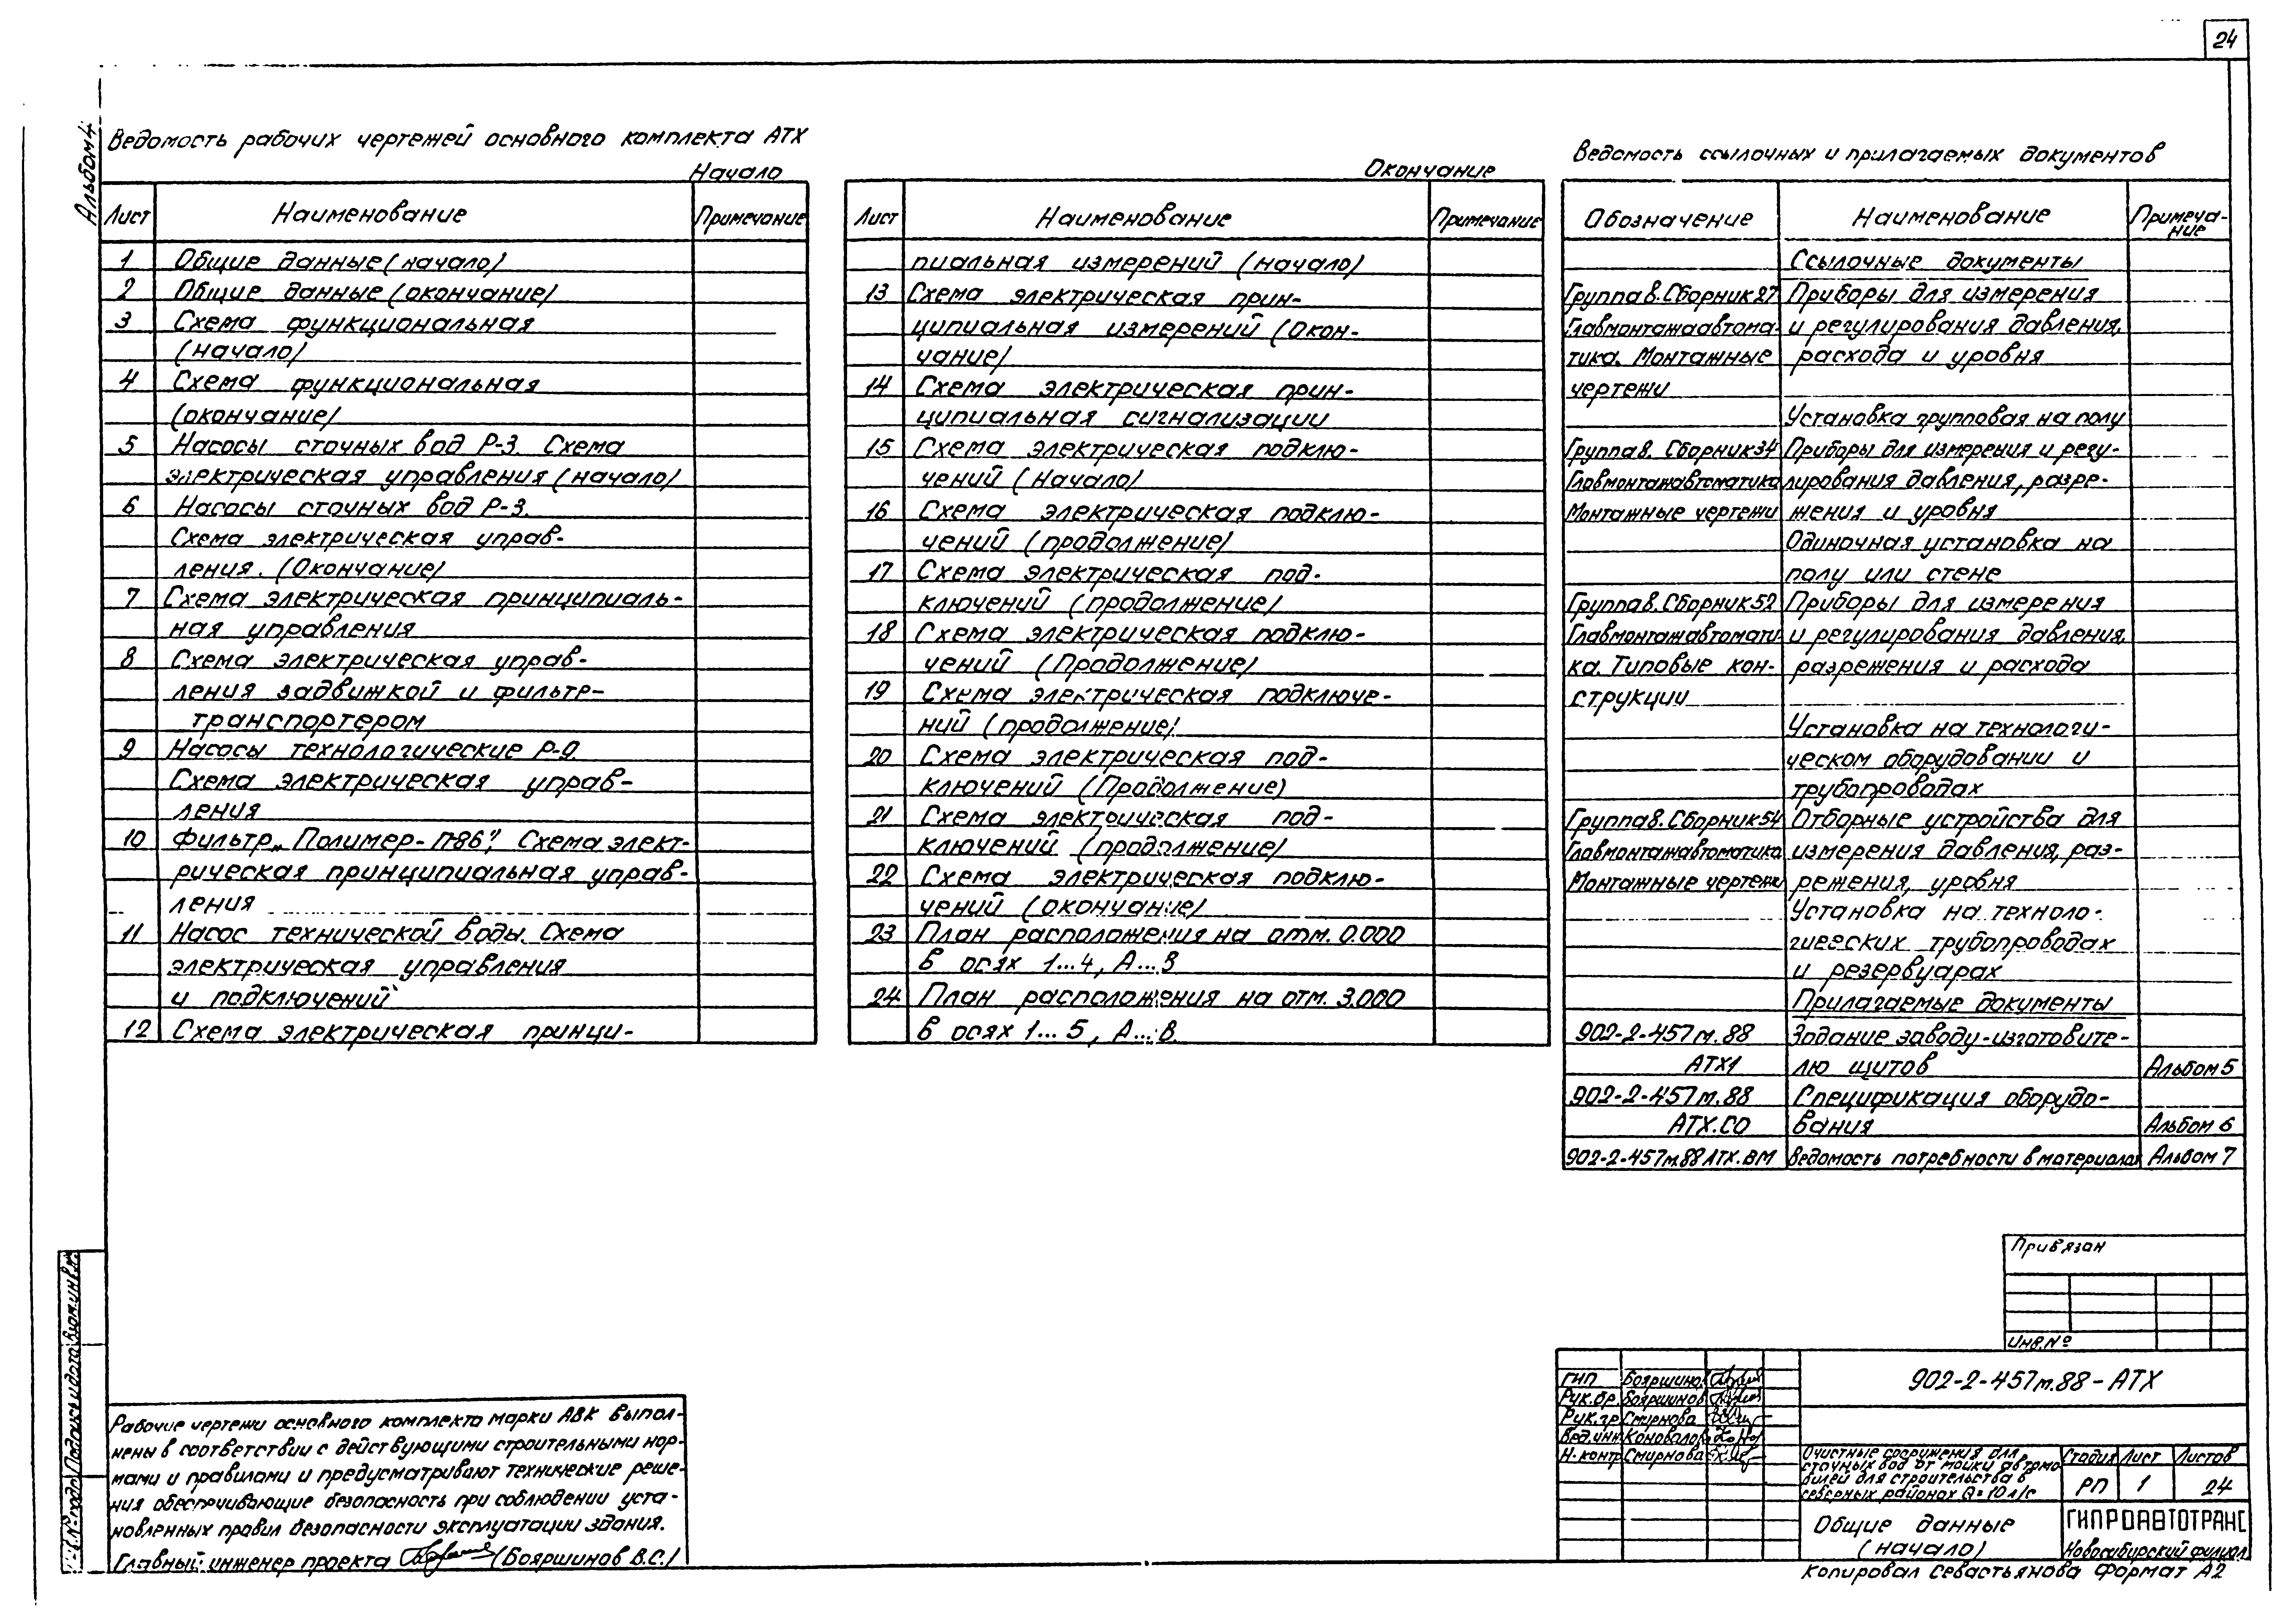 24
Альбом 4
Ведомость рабочих чертежей основного комплекта АТХ
Начало
Лист Наименование Примечание
1 Общие данные (начало)
2 Общие данные (окончание)
3 Схема функциональная
(начало)
4 Схема функциональная
(окончание)
5 Насосы сточных вод Р-3. Схема
электрическая управления (начало)
6 Насосы сточных вод Р-3.
Схема электрическая управ-
ления. (Окончание)
7 Схема электрическая принципиаль-
ная управления
8 Схема электрическая управ-
ления задвижкой и фильтр-
транспортером
9 Насосы технологические Р-9.
Схема электрическая управ-
ления
10 Фильтр „Полимер-П-86", Схема элект-
рическая принципиальная управ-
ления
11 Насос технической воды. Схема
электрическая управления
и подключений
12 Схема электрическая принци-
Окончание
Лист Наименование Примечание
пиальная измерений (начало)
13 Схема электрическая прин-
ципиальная измерений (Окон-
чание)
14 Схема электрическая прин-
ципиальная сигнализации
15 Схема электрическая подклю-
чений (Начало)
16 Схема электрическая подклю-
чений (продолжение)
17 Схема электрическая под-
ключений (продолжение)
18 Схема электрическая подклю-
чений (Продолжение)
19 Схема электрическая подключе-
ний (продолжение)
20 Схема электрическая под-
ключений (Продолжение)
21 Схема электрическая под-
ключений (продолжение)
22 Схема электрическая подклю-
чений (окончание)
23 План расположения на отм. 0.000
в осях 1...4, А...В
24 План расположения на отм. 3.000
в осях 1...5, А...В.
Ведомость ссылочных и прилагаемых документов
Обозначение Наименование Примеча-
ние
Ссылочные документы
Группа 8. Сборник 27 Приборы для измерения
Главмонтажавтома- и регулирования давления,
тика. Монтажные расхода и уровня
чертежи
Установка групповая на полу
Группа 8. Сборник 34 Приборы для измерения и регу-
Главмонтажавтоматика лирования давления, разре-
Монтажные чертежи жения и уровня
Одиночная установка на
полу или стене
Группа 8. Сборник 52 Приборы для измерения
Главмонтажавтомати- и регулирования давления,
ка. Типовые кон- разрежения и расхода
струкции
Установка на технологи-
ческом оборудовании и
трубопроводах
Группа 8. Сборник 54 Отборные устройства для
Главмонтажавтоматика измерения давления, раз-
Монтажные чертежи режения, уровня
Установка на техноло-
гических трубопроводах
и резервуарах
Прилагаемые документы
902-2-457м.88 Задание заводу-изготовите-
АТХ1 лю щитов Альбом 5
902-2-457м.88 Спецификация оборудо-
АТХ.СО вания Альбом 6
902-2-457м.88 АТХ.ВМ Ведомость потребности в материалах Альбом 7
Привязан
Инв.№
Рабочие чертежи основного комплекта марки АВК выпол-
нены в соответствии с действующими строительными нор-
мами и правилами и предусматривают технические реше-
ния обеспечивающие безопасность при соблюдении уста-
новленных правил безопасности эксплуатации здания.
Главный инженер проекта (Бояршинов В.С.)
Инв.№ подл. Подпись и дата Взам.инв.№
ГИП Бояршинов
Рук.бр. Бояршинов
Рук.гр. Смирнова
Вед.инж. Коновалов
Н.контр. Смирнова
902-2-457м.88-АТХ
Очистные сооружения для
сточных вод от мойки автомо-
билей для строительства в
северных районах Q=10 л/с
Стадия Лист Листов
РП 1 24
Общие данные
(начало)
ГИПРОАВТОТРАНС
Новосибирский филиал
Копировал Севастьянова Формат А2